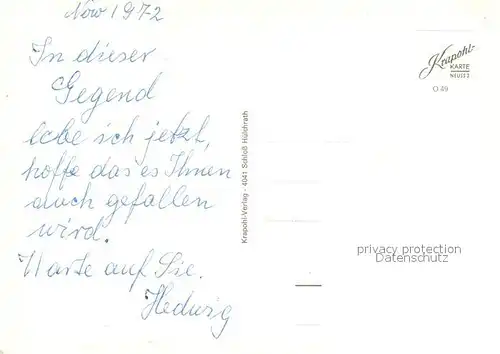 Nov 1972
In dieser
Gegend
lebe ich jetzt,
hoffe das es Ihnen
auch gefallen
wird.
Warte auf Sie.
Hedwig
Krapohl-Verlag - 4041 Schloß Hülchrath
Krapohl-
KARTE
NEUSS 2
O 49
privacy protection
Datenschutz